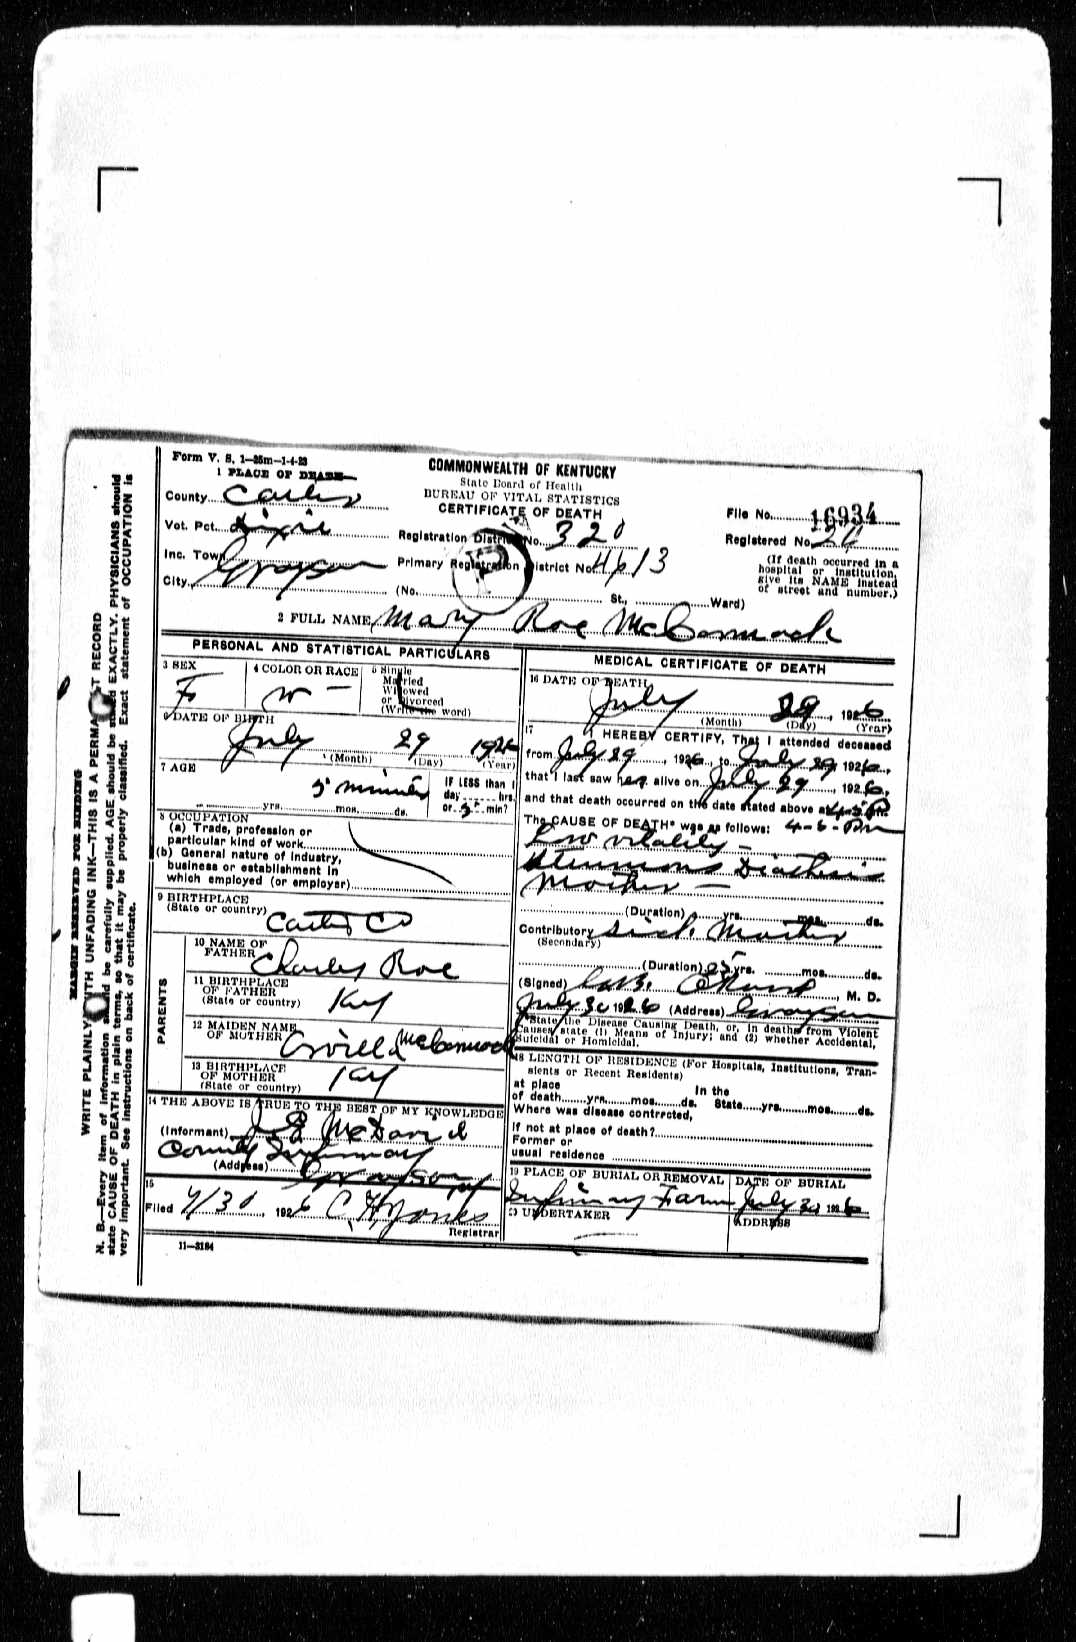 Form V. S. 1—35m—1-4-23
1 PLACE OF DEATH
COMMONWEALTH OF KENTUCKY
State Board of Health
BUREAU OF VITAL STATISTICS
CERTIFICATE OF DEATH
County Carter
Vot. Pct. Dixie
Inc. Town Grayson
City
Registration District No. 320
Primary Registration District No. 4613
(No. St., Ward)
File No. 16934
Registered No. 26
(If death occurred in a
hospital or institution,
give its NAME instead
of street and number.)
2 FULL NAME Mary Roe McCormack
PERSONAL AND STATISTICAL PARTICULARS
3 SEX
F
4 COLOR OR RACE
W —
5 Single
Married
Widowed
or Divorced
(Write the word)
6 DATE OF BIRTH
July 29 1926
(Month) (Day) (Year)
7 AGE
5 minutes
yrs. mos. ds.
IF LESS than 1
day hrs.
or 5 min?
8 OCCUPATION
(a) Trade, profession or
particular kind of work
(b) General nature of industry,
business or establishment in
which employed (or employer)
9 BIRTHPLACE
(State or country)
Carter Co
PARENTS
10 NAME OF
FATHER Charley Roe
11 BIRTHPLACE
OF FATHER
(State or country) Ky
12 MAIDEN NAME
OF MOTHER McCormack
13 BIRTHPLACE
OF MOTHER
(State or country) Ky
14 THE ABOVE IS TRUE TO THE BEST OF MY KNOWLEDGE
(Informant) J E McDavid
County Infirmary
(Address) Grayson Ky
15
Filed 7/30, 1926 C H Jones
Registrar
11—3184
MEDICAL CERTIFICATE OF DEATH
16 DATE OF DEATH
July 29, 1926
(Month) (Day) (Year)
17 I HEREBY CERTIFY, That I attended deceased
from July 29, 1926, to July 29, 1926,
that I last saw her alive on July 29, 1926,
and that death occurred on the date stated above at 4-5 P m.
The CAUSE OF DEATH* was as follows: 4-6-Pm
Low vitality —
Diathesis
Mother —
(Duration) yrs. mos. ds.
Contributory Sick Mother
(Secondary)
(Duration) yrs. mos. ds.
(Signed) M. D.
July 30 1926 (Address) Grayson
*State the Disease Causing Death, or, in deaths from Violent
Causes, state (1) Means of Injury; and (2) whether Accidental,
Suicidal or Homicidal.
18 LENGTH OF RESIDENCE (For Hospitals, Institutions, Tran-
sients or Recent Residents)
at place In the
of death yrs. mos. ds. State yrs. mos. ds.
Where was disease contracted,
If not at place of death?
Former or
usual residence
19 PLACE OF BURIAL OR REMOVAL
Infirmary Farm
DATE OF BURIAL
July 30 1926
20 UNDERTAKER
ADDRESS
MARGIN RESERVED FOR BINDING
WRITE PLAINLY WITH UNFADING INK—THIS IS A PERMANENT RECORD
N. B.—Every item of information should be carefully supplied. AGE should be stated EXACTLY. PHYSICIANS should
state CAUSE OF DEATH in plain terms, so that it may be properly classified. Exact statement of OCCUPATION is
very important. See instructions on back of certificate.